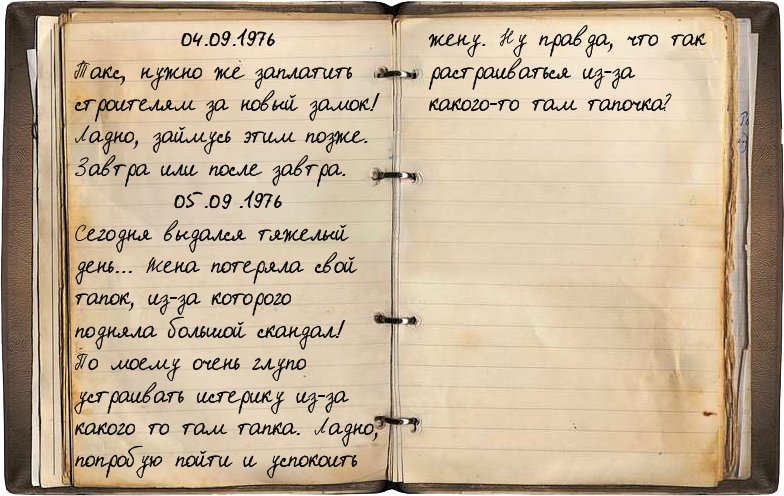 04.09.1976
Такс, нужно же заплатить
строителям за новый замок!
Ладно, займусь этим позже.
Завтра или после завтра.
05.09.1976
Сегодня выдался тяжелый
день... Жена потеряла свой
тапок, из-за которого
подняла большой скандал!
По моему очень глупо
устраивать истерику из-за
какого то там тапка. Ладно,
попробую пойти и успокоить
жену. Ну правда, что так
растраиваться из-за
какого-то там тапочка?